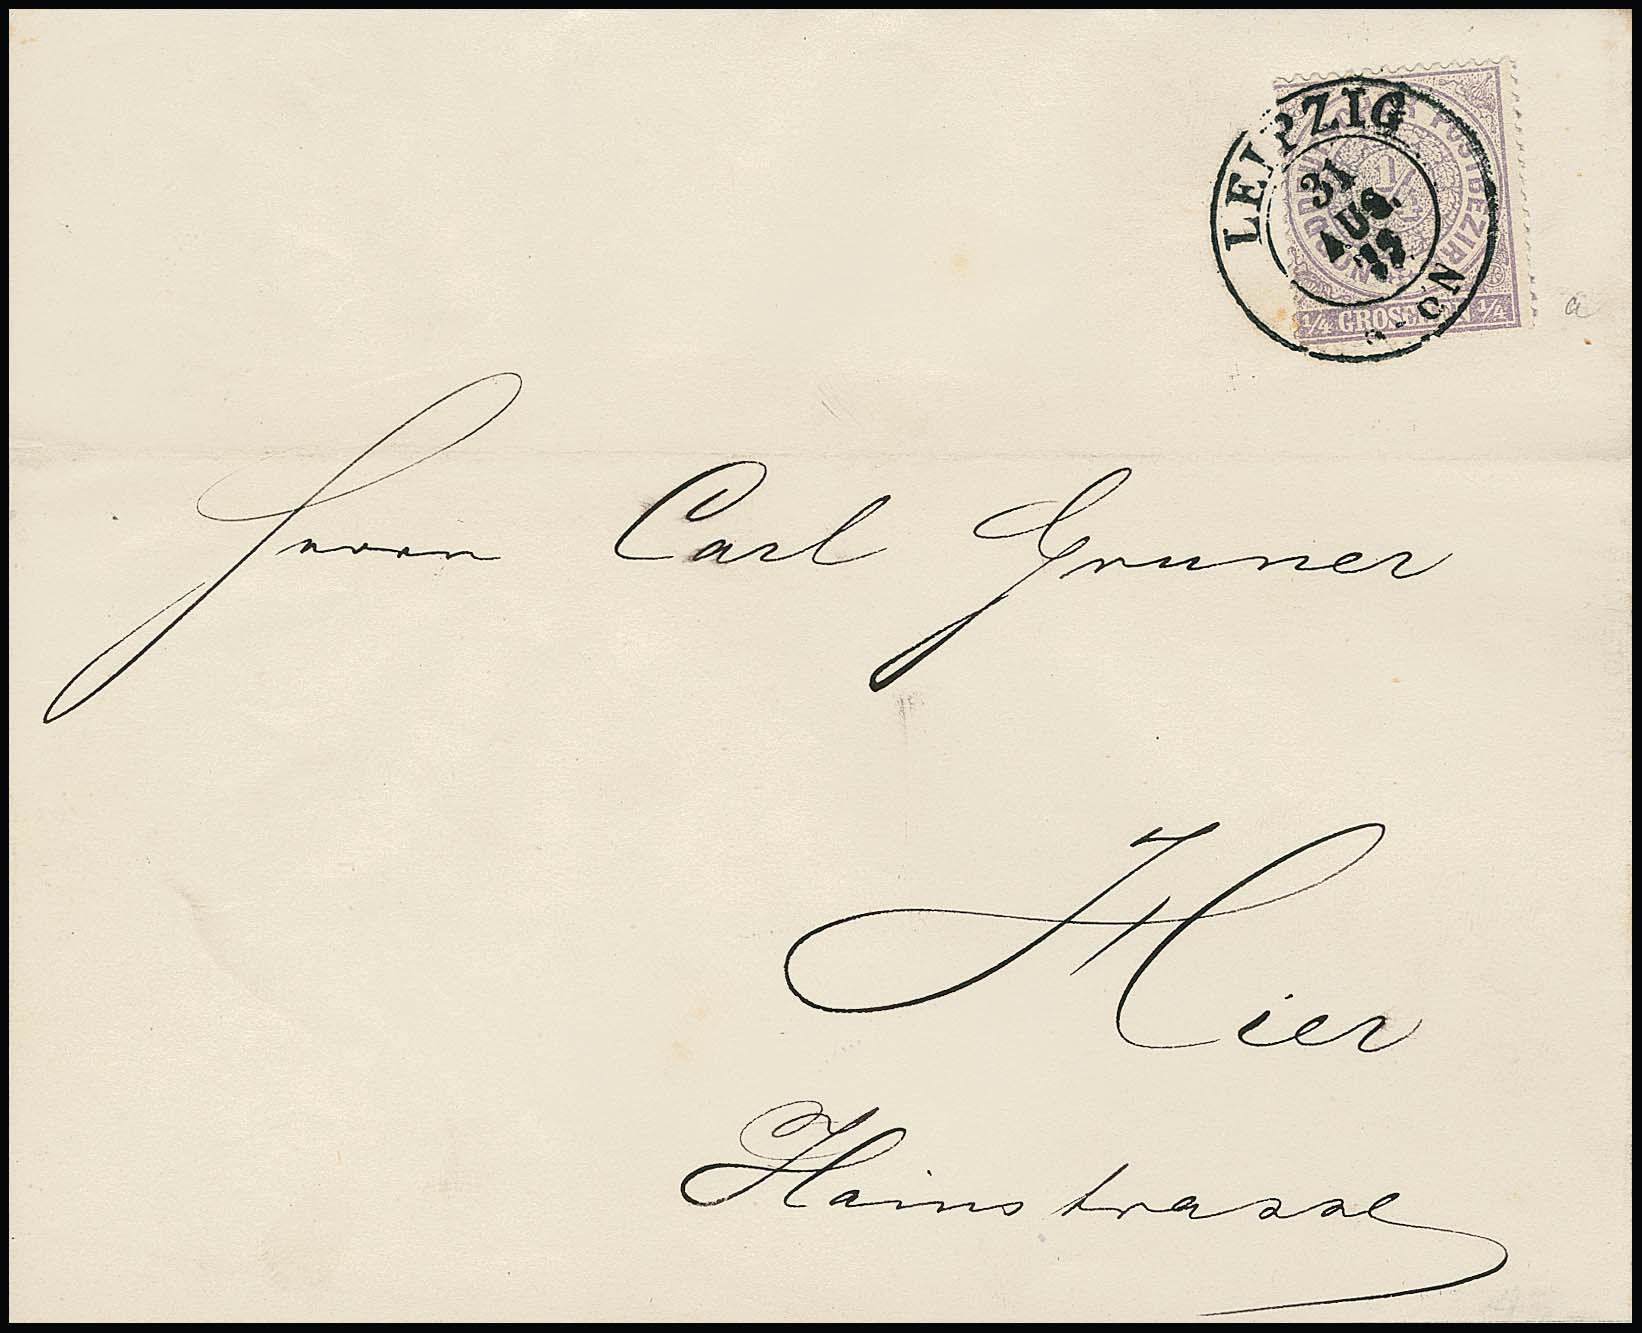 LEIPZIG
31
AUG.
NORDD POSTBEZIRK
1/4
1/4 GROSCHEN 1/4
a
Herrn Carl Gruner
Hier
Hainstrasse